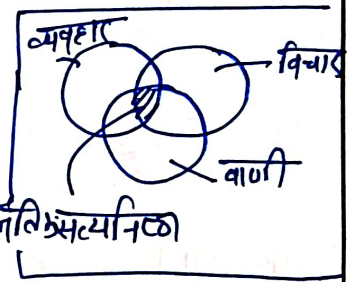 व्यवहार
विचार
वाणी
नैतिक सत्यनिष्ठा